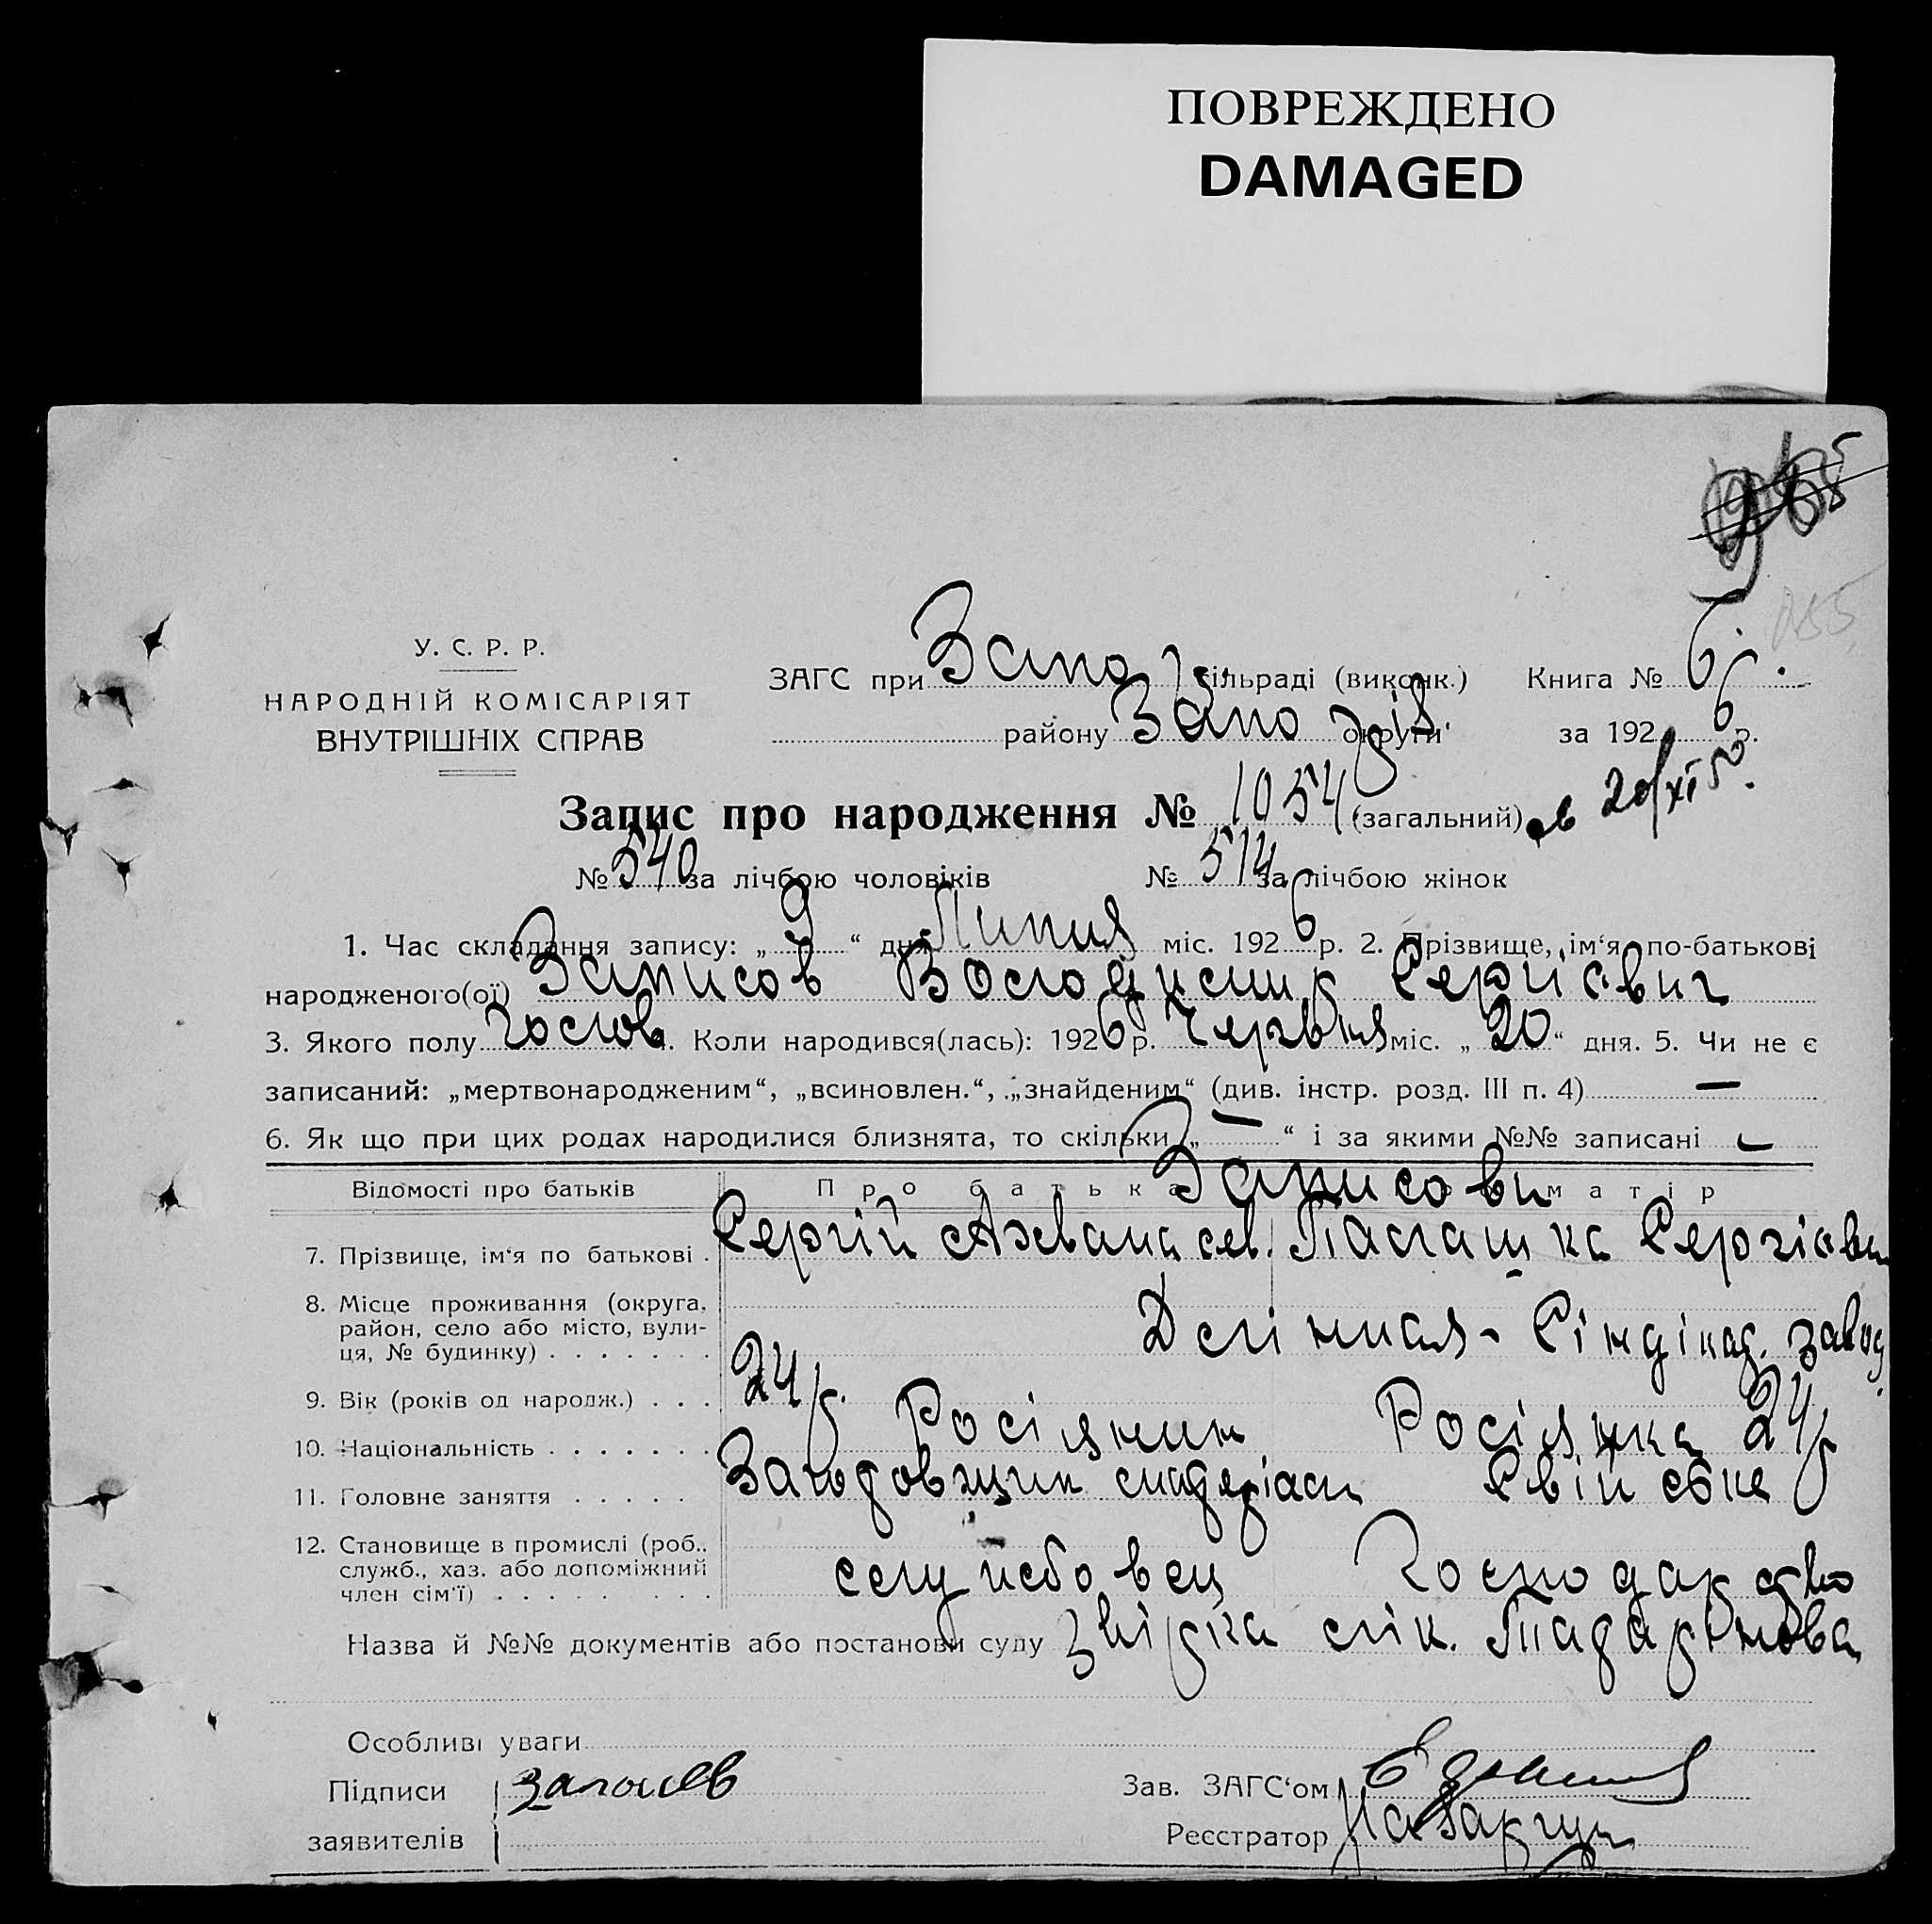 ПОВРЕЖДЕНО
DAMAGED
У. С. Р. Р.
НАРОДНІЙ КОМІСАРІЯТ
ВНУТРІШНІХ СПРАВ
ЗАГС при Запо сільраді (виконк.) Книга № 6
району Запоріз округи за 1926 р.
Запис про народження № 1054 (загальний) 20/XI 50
№ 540 за лічбою чоловіків № 514 за лічбою жінок
1. Час складання запису: „ 9 “ дня Липня міс. 1926 р. 2. Прізвище, ім‘я, по-батькові
народженого(ої) Записов Володимир Сергієвич
3. Якого полу Чолов. Коли народився(лась): 1926 р. Червня міс. „ 20 “ дня. 5. Чи не є
записаний: „мертвонародженим“, „всиновлен.“, „знайденим“ (див. інстр. розд. III п. 4) —
6. Як що при цих родах народилися близнята, то скільки „ — “ і за якими №№ записані —
Відомості про батьків Про батька матір
Записови
7. Прізвище, ім‘я по батькові . Сергій Сергіївна
8. Місце проживання (округа,
район, село або місто, вули-
ця, № будинку) . . . . . . . завод
9. Вік (років од народж.) . . . 24 р. 24 р
10. Національність . . . . . . . Росіянин Росіянка
11. Головне заняття . . . . .
12. Становище в промислі (роб..
служб., хаз. або допоміжний
член сім‘ї) . . . . . . . . . службовец Господарство
Назва й №№ документів або постанови суду звірка лік. Татарінова
Особливі уваги
Підписи
заявителів
Зав. ЗАГС‘ом
Реєстратор